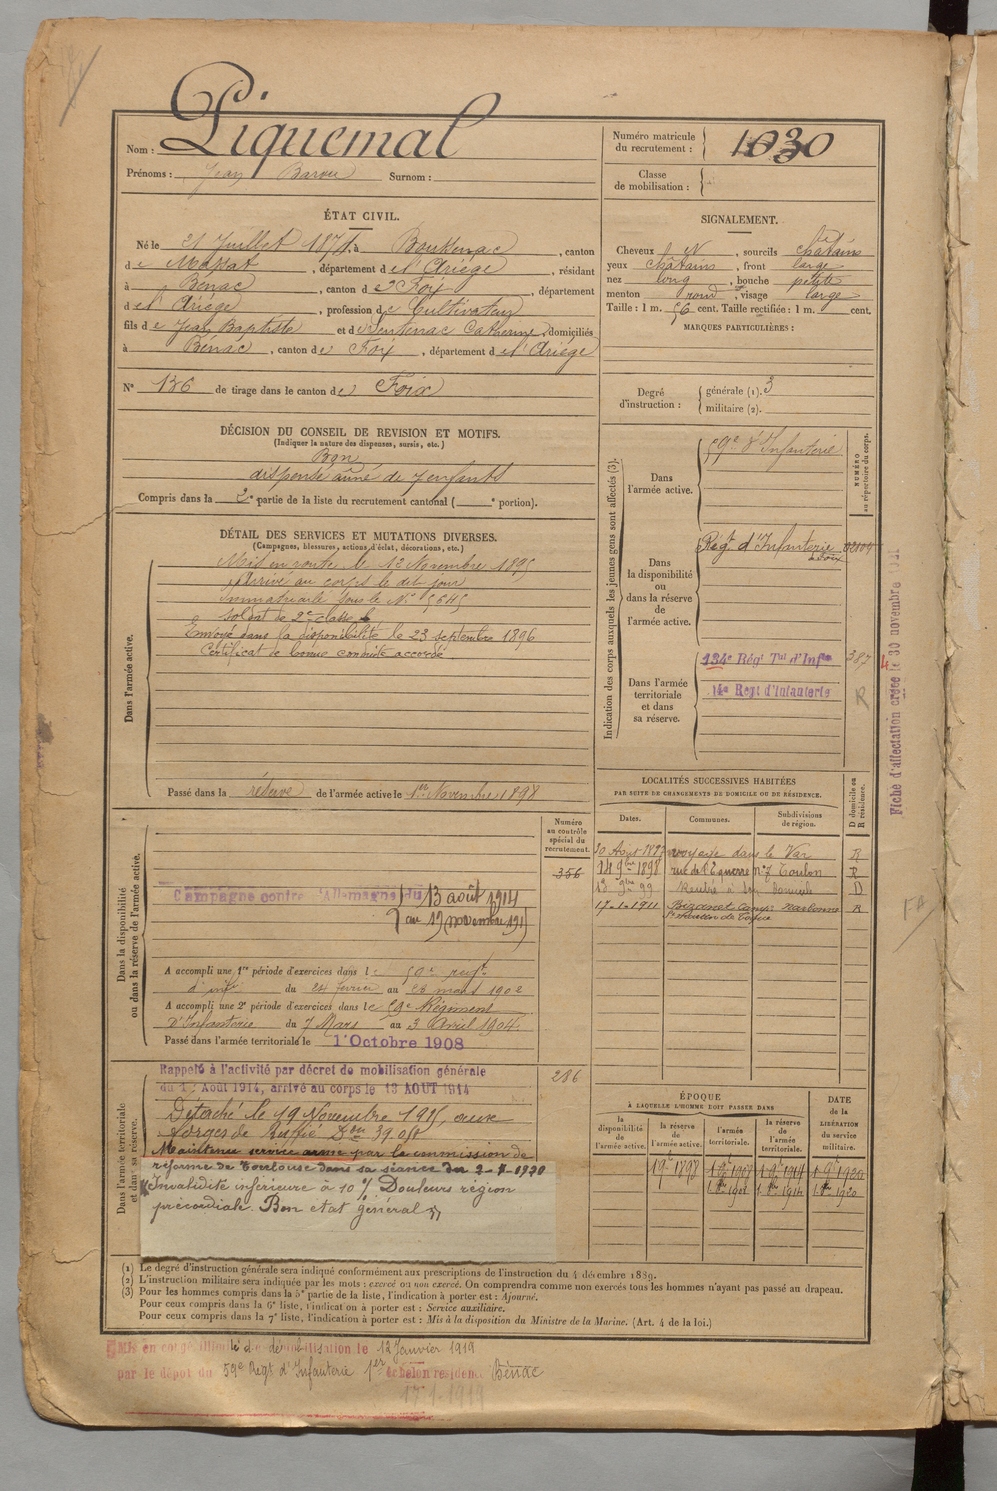 Nom : Piquemal
Prénoms : Jean Surnom :
Numéro matricule
du recrutement : 1030
Classe
de mobilisation :
ÉTAT CIVIL.
Né le 21 Juillet 187 à Boussenac, canton
de Massat, département de l'Ariège, résidant
à Bénac, canton de Foix, département
de l'Ariège, profession de Cultivateur
fils de Jean Baptiste et de Sentenac Catherine, domiciliés
à Bénac, canton de Foix, département de l'Ariège
N° 136 de tirage dans le canton de Foix
DÉCISION DU CONSEIL DE REVISION ET MOTIFS.
(Indiquer la nature des dispenses, sursis, etc.)
Bon
dispensé aîné de 7 enfants
Compris dans la 2e partie de la liste du recrutement cantonal ( e portion).
SIGNALEMENT.
Cheveux N, sourcils chatains
yeux châtains, front large
nez long, bouche petite
menton rond, visage large
Taille : 1 m. 56 cent. Taille rectifiée : 1 m. cent.
MARQUES PARTICULIÈRES :
Degré
d'instruction :
générale (1). 3
militaire (2).
DÉTAIL DES SERVICES ET MUTATIONS DIVERSES.
(Campagnes, blessures, actions d'éclat, décorations, etc.)
Dans l'armée active.
Mis en route le 13 Novembre 1895
Arrivé au corps le dit jour
Immatriculé sous le N° 5645
Soldat de 2e classe
Envoyé dans la disponibilité le 23 septembre 1896
Certificat de bonne conduite accordé
Passé dans la réserve de l'armée active le 1er Novembre 1898
Indication des corps auxquels les jeunes gens sont affectés (3).
NUMÉRO
au répertoire du corps.
Dans
l'armée active.
59e d'Infanterie
Dans
la disponibilité
ou
dans la réserve
de
l'armée active.
Régt d'Infanterie
de Foix
Dans l'armée
territoriale
et dans
sa réserve.
134e Régt Tal d'Infie
387
14e Regt d'Infanterie
R
Fiche d'affectation créée le 30 novembre
LOCALITÉS SUCCESSIVES HABITÉES
PAR SUITE DE CHANGEMENTS DE DOMICILE OU DE RÉSIDENCE.
D domicile ou
R résidence.
Dates. Communes. Subdivisions
de région.
30 Août 1897 voyage dans le Var R
14 9bre 1898 rue de l'Equerre n° 7 Toulon R
13 9bre 99 Rentré à son domicile D
17-1-1911 Bizanet Camp: Narbonne R
Dans la disponibilité
ou dans la réserve de l'armée active.
Numéro
au contrôle
spécial du
recrutement.
356
Campagne contre l'Allemagne du 13 août 1914
au 19 novembre 1915
A accompli une 1re période d'exercices dans le 59e regt
d'infie du 24 février au 23 mars 1902
A accompli une 2e période d'exercices dans le 59e Régiment
d'Infanterie du 7 Mars au 3 Avril 1904.
Passé dans l'armée territoriale le 1 Octobre 1908
Dans l'armée territoriale
et dans sa réserve.
Rappelé à l'activité par décret de mobilisation générale
du 1 Août 1914, arrivé au corps le 13 AOUT 1914
286
Détaché le 19 Novembre 1915, aux
Forges de
Maintenu service armé par la commission de
réforme de Toulouse dans sa séance du 2-7-1920
Invalidité inférieure à 10 % Douleurs région
précordiale. Bon état général
ÉPOQUE
À LAQUELLE L'HOMME DOIT PASSER DANS
DATE
de la
LIBÉRATION
du service
militaire.
la
disponibilité
de
l'armée active.
la réserve
de
l'armée active.
l'armée
territoriale.
la réserve
de
l'armée
territoriale.
1 9e 1898 1 9e 1908 1 9e 1914 1 9e 1920
(1) Le degré d'instruction générale sera indiqué conformément aux prescriptions de l'instruction du 4 décembre 1889.
(2) L'instruction militaire sera indiquée par les mots : exercé ou non exercé. On comprendra comme non exercés tous les hommes n'ayant pas passé au drapeau.
(3) Pour les hommes compris dans la 5e partie de la liste, l'indication à porter est : Ajourné.
Pour ceux compris dans la 6e liste, l'indication à porter est : Service auxiliaire.
Pour ceux compris dans la 7e liste, l'indication à porter est : Mis à la disposition du Ministre de la Marine. (Art. 4 de la loi.)
Mis en congé illimité de démobilisation le 12 Janvier 1919
par le dépôt du 59e Regt d'Infanterie 1er échelon residence Bénac